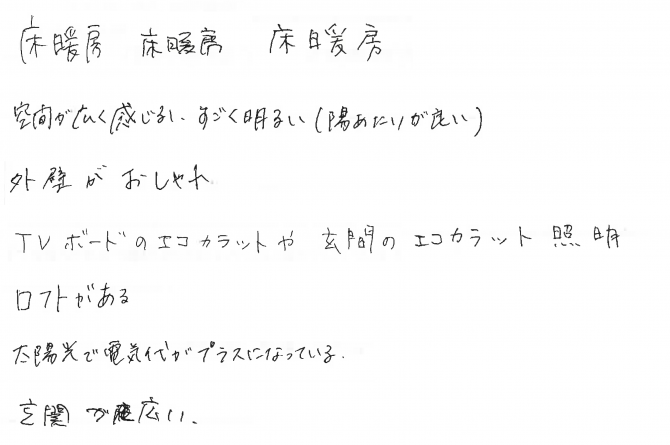 床暖房 床暖房 床暖房
空間が広く感じる、すごく明るい(陽あたりが良い)
外壁がおしゃれ
TVボードのエコカラットや 玄関のエコカラット 照明
ロフトがある
太陽光で電気代がプラスになっている.
玄関が広い.